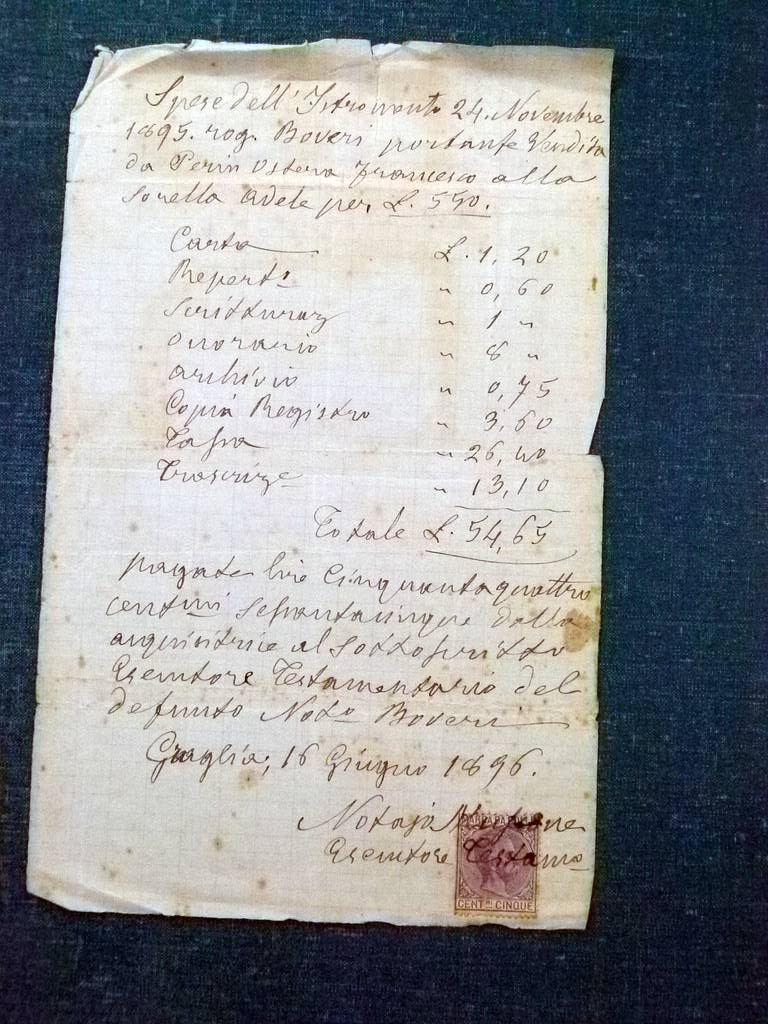 Spese dell'Istromento 24. Novembre
1895. rog. Boveri portante Vendita
da Perin Ostera Francesco alla
sorella Adele per L. 550.
Carta L. 1, 20
Repert° " 0, 60
Scritturaz " 1 "
Onorario " 8 "
Archivio " 0, 75
Copia Registro " 3, 60
Tassa " 26, 40
Trascrize " 13, 10
Totale L. 54, 65
pagate lire Cinquantaquattro
centmi sessantacinque dalla
acquisitrice al sottoscritto
Esecutore Testamentario del
defunto Not° Boveri
Graglia, 16 Giugno 1896.
Notajo
Esecutore Testamo
MARCA DA BOLLO
CENT.MI CINQUE